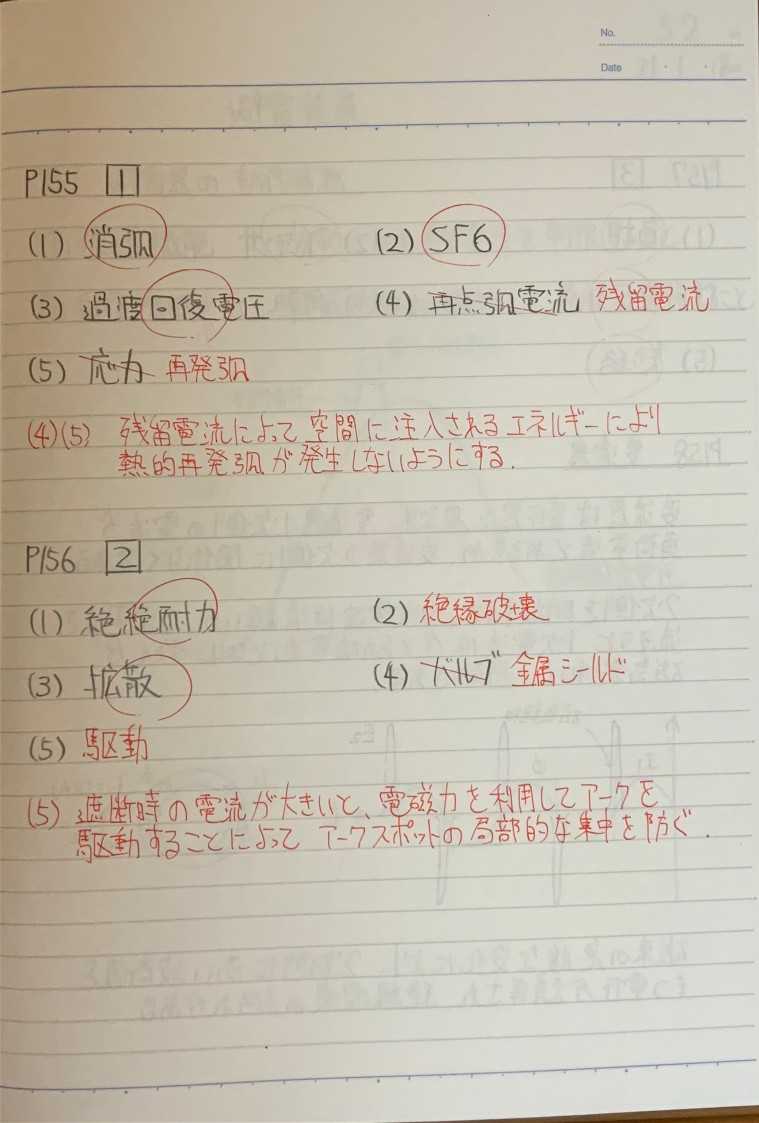 No.
Date
P155 1
(1) 消弧 (2) SF6
(3) 過渡回復電圧 (4) 再点弧電流 残留電流
(5) 応力 再発弧
(4)(5) 残留電流によって空間に注入されるエネルギーにより
熱的再発弧が発生しないようにする.
P156 2
(1) 絶縁耐力 (2) 絶縁破壊
(3) 拡散 (4) バルブ 金属シールド
(5) 駆動
(5) 遮断時の電流が大きいと、電磁力を利用してアークを
駆動することによって アークスポットの局部的な集中を防ぐ.